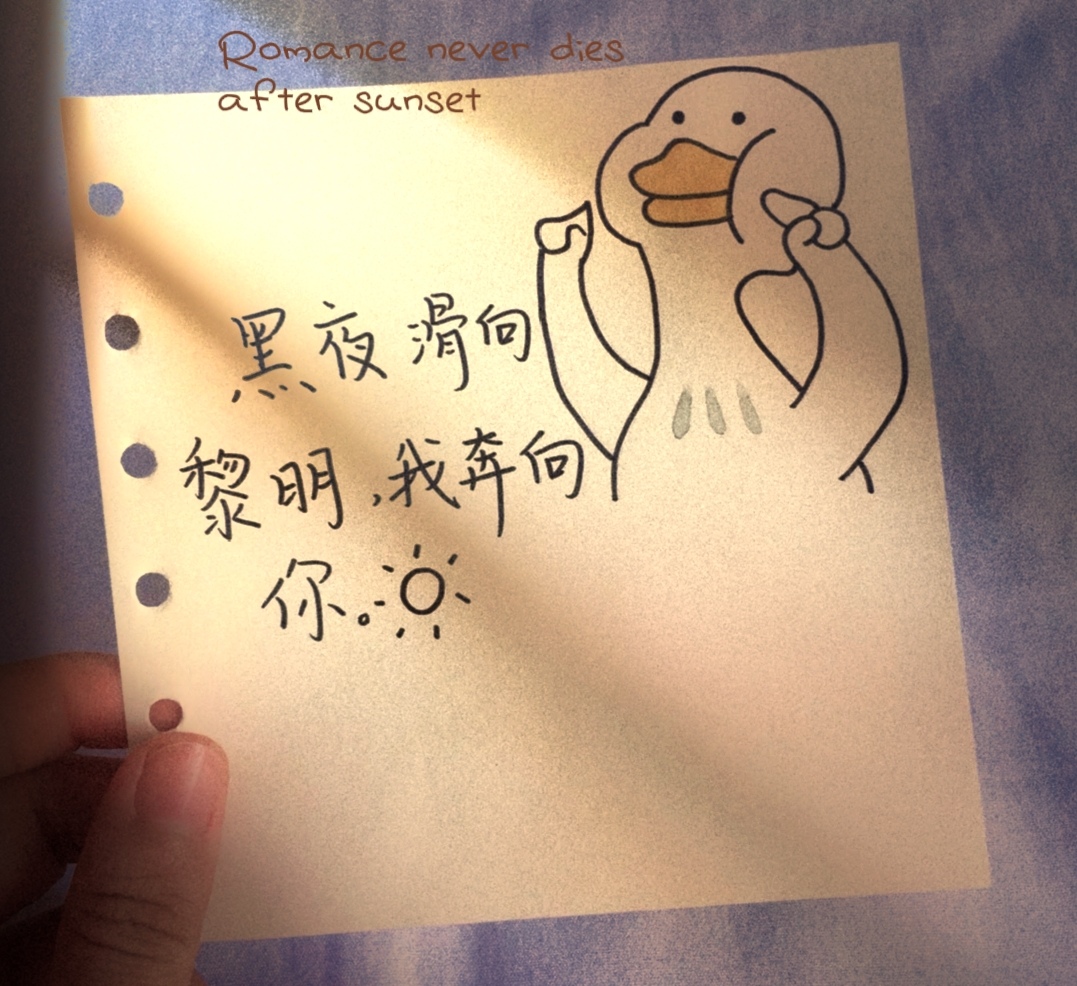 Romance never dies
after sunset
黑夜滑向
黎明,我奔向
你。